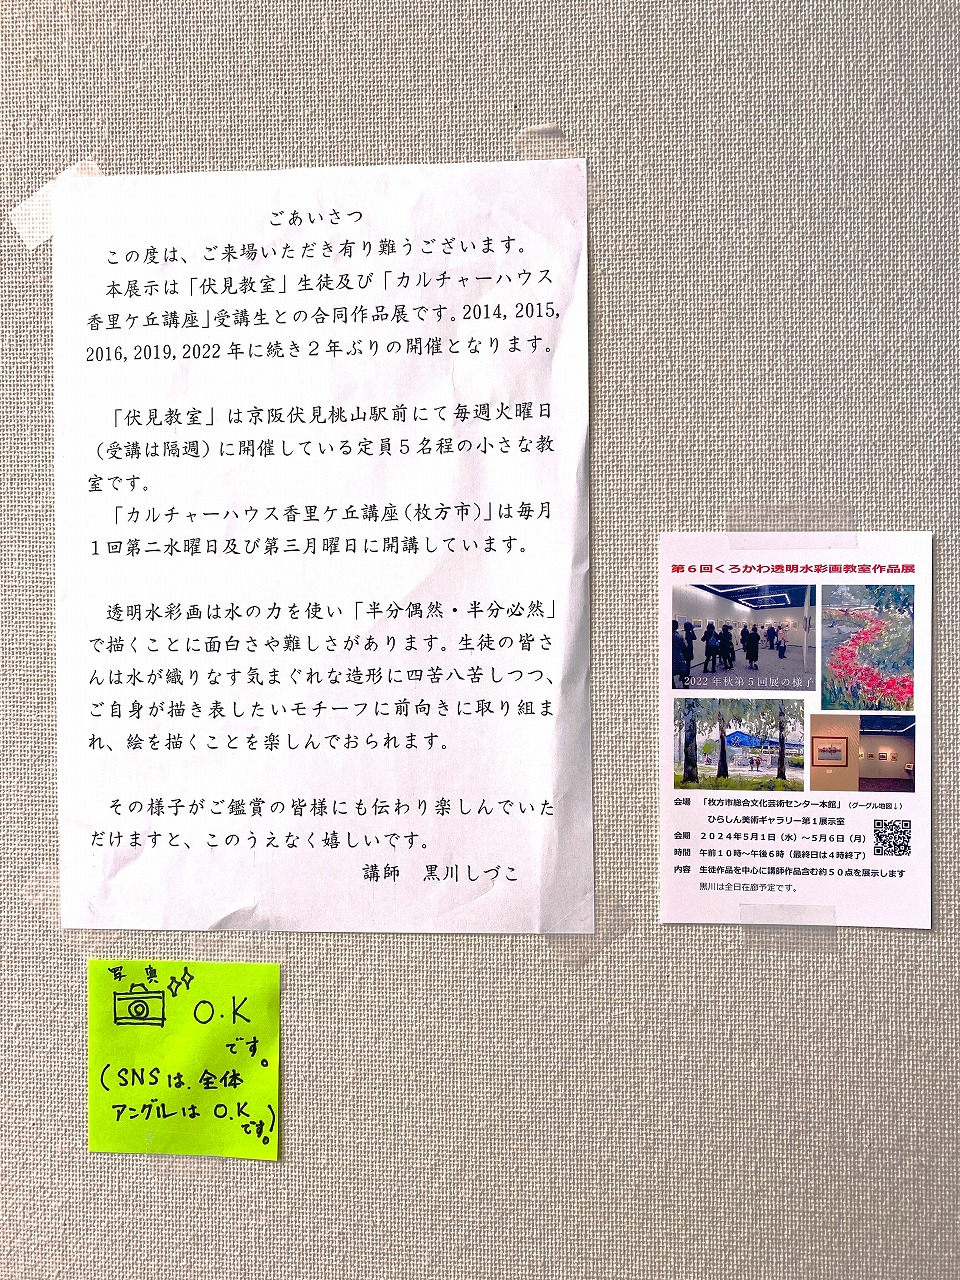 ごあいさつ
この度は、ご来場いただき有り難うございます。
本展示は「伏見教室」生徒及び「カルチャーハウス
香里ケ丘講座」受講生との合同作品展です。2014, 2015,
2016, 2019, 2022 年に続き２年ぶりの開催となります。
「伏見教室」は京阪伏見桃山駅前にて毎週火曜日
（受講は隔週）に開催している定員５名程の小さな教
室です。
「カルチャーハウス香里ケ丘講座（枚方市）」は毎月
１回第二水曜日及び第三月曜日に開講しています。
透明水彩画は水の力を使い「半分偶然・半分必然」
で描くことに面白さや難しさがあります。生徒の皆さ
んは水が織りなす気まぐれな造形に四苦八苦しつつ、
ご自身が描き表したいモチーフに前向きに取り組ま
れ、絵を描くことを楽しんでおられます。
その様子がご鑑賞の皆様にも伝わり楽しんでいた
だけますと、このうえなく嬉しいです。
講師　黒川しづこ
第６回くろかわ透明水彩画教室作品展
2022 年秋第５回展の様子
会場　「枚方市総合文化芸術センター本館」（グーグル地図↓）
ひらしん美術ギャラリー第１展示室
会期　２０２４年５月１日（水）～５月６日（月）
時間　午前１０時～午後６時（最終日は４時終了）
内容　生徒作品を中心に講師作品含む約５０点を展示します
黒川は全日在廊予定です。
写真
O.K
です。
(SNSは.全体
アングルは O.K
です。)